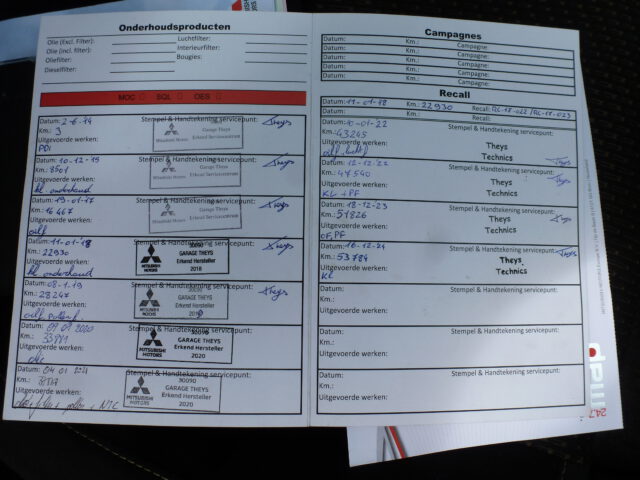 Onderhoudsproducten
Olie (Excl. Filter):
Luchtfilter:
Olie (incl. filter):
Interieurfilter:
Oliefilter:
Bougies:
Dieselfilter:
Datum: 2-6-14
Stempel & Handtekening servicepunt:
Km.: 3
Garage Theys
Erkend Servicecentrum
Mitsubishi Motors
Theys
Uitgevoerde werken:
PDI
Datum: 10-12-15
Stempel & Handtekening servicepunt:
Km.: 8501
Garage Theys
Erkend Servicecentrum
Mitsubishi Motors
Theys
Uitgevoerde werken:
kl. onderhoud
Datum: 19-01-17
Stempel & Handtekening servicepunt:
Km.: 16467
Garage Theys
Erkend Servicecentrum
Mitsubishi Motors
Theys
Uitgevoerde werken:
Datum: 11-01-18
Stempel & Handtekening servicepunt:
Km.: 22930
30090
GARAGE THEYS
Erkend Hersteller
2018
MITSUBISHI MOTORS
Theys
Uitgevoerde werken:
kl onderhoud
Datum: 08-1-19
Stempel & Handtekening servicepunt:
Km.: 28247
30090
GARAGE THEYS
Erkend Hersteller
MITSUBISHI MOTORS
Theys
Uitgevoerde werken:
Datum: 09 01 2020
Stempel & Handtekening servicepunt:
Km.:
30090
GARAGE THEYS
Erkend Hersteller
2020
MITSUBISHI MOTORS
Uitgevoerde werken:
Datum: 04 01 2021
Stempel & Handtekening servicepunt:
Km.:
30090
GARAGE THEYS
Erkend Hersteller
2020
MITSUBISHI MOTORS
Uitgevoerde werken:
Campagnes
Datum: Km.: Campagne:
Datum: Km.: Campagne:
Datum: Km.: Campagne:
Datum: Km.: Campagne:
Datum: Km.: Campagne:
Recall
Datum: 11-01-18 Km.: 22930 Recall: RC-18-022/RC-18-023
Datum: Km.: Recall:
Datum: 10-01-22
Stempel & Handtekening servicepunt:
Km.: 43245
Theys
Technics
Uitgevoerde werken:
Datum: 15-12-22
Stempel & Handtekening servicepunt:
Km.: 47540
Theys
Technics
Theys
Uitgevoerde werken:
KL + PF
Datum: 18-12-23
Stempel & Handtekening servicepunt:
Km.: 51826
Theys
Technics
Theys
Uitgevoerde werken:
OF, PF
Datum: 16-12-24
Stempel & Handtekening servicepunt:
Km.: 53784
Theys
Technics
Theys
Uitgevoerde werken:
Kl
Datum:
Stempel & Handtekening servicepunt:
Km.:
Uitgevoerde werken:
Datum:
Stempel & Handtekening servicepunt:
Km.:
Uitgevoerde werken:
Datum:
Stempel & Handtekening servicepunt:
Km.:
Uitgevoerde werken:
map
24.7